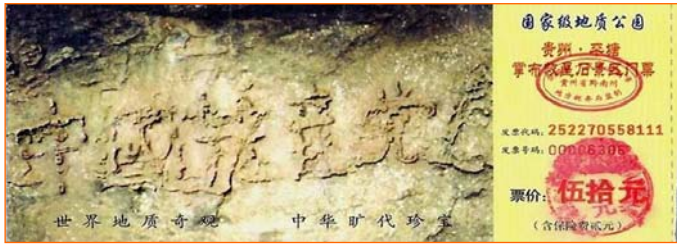 中国共产党
世界地质奇观 中华旷代珍宝
国家级地质公园
贵州·平塘
掌布
景区门票
贵州省黔南州
发票代码：252270558111
发票号码：00006306
票价：伍拾元
（含保险费贰元）